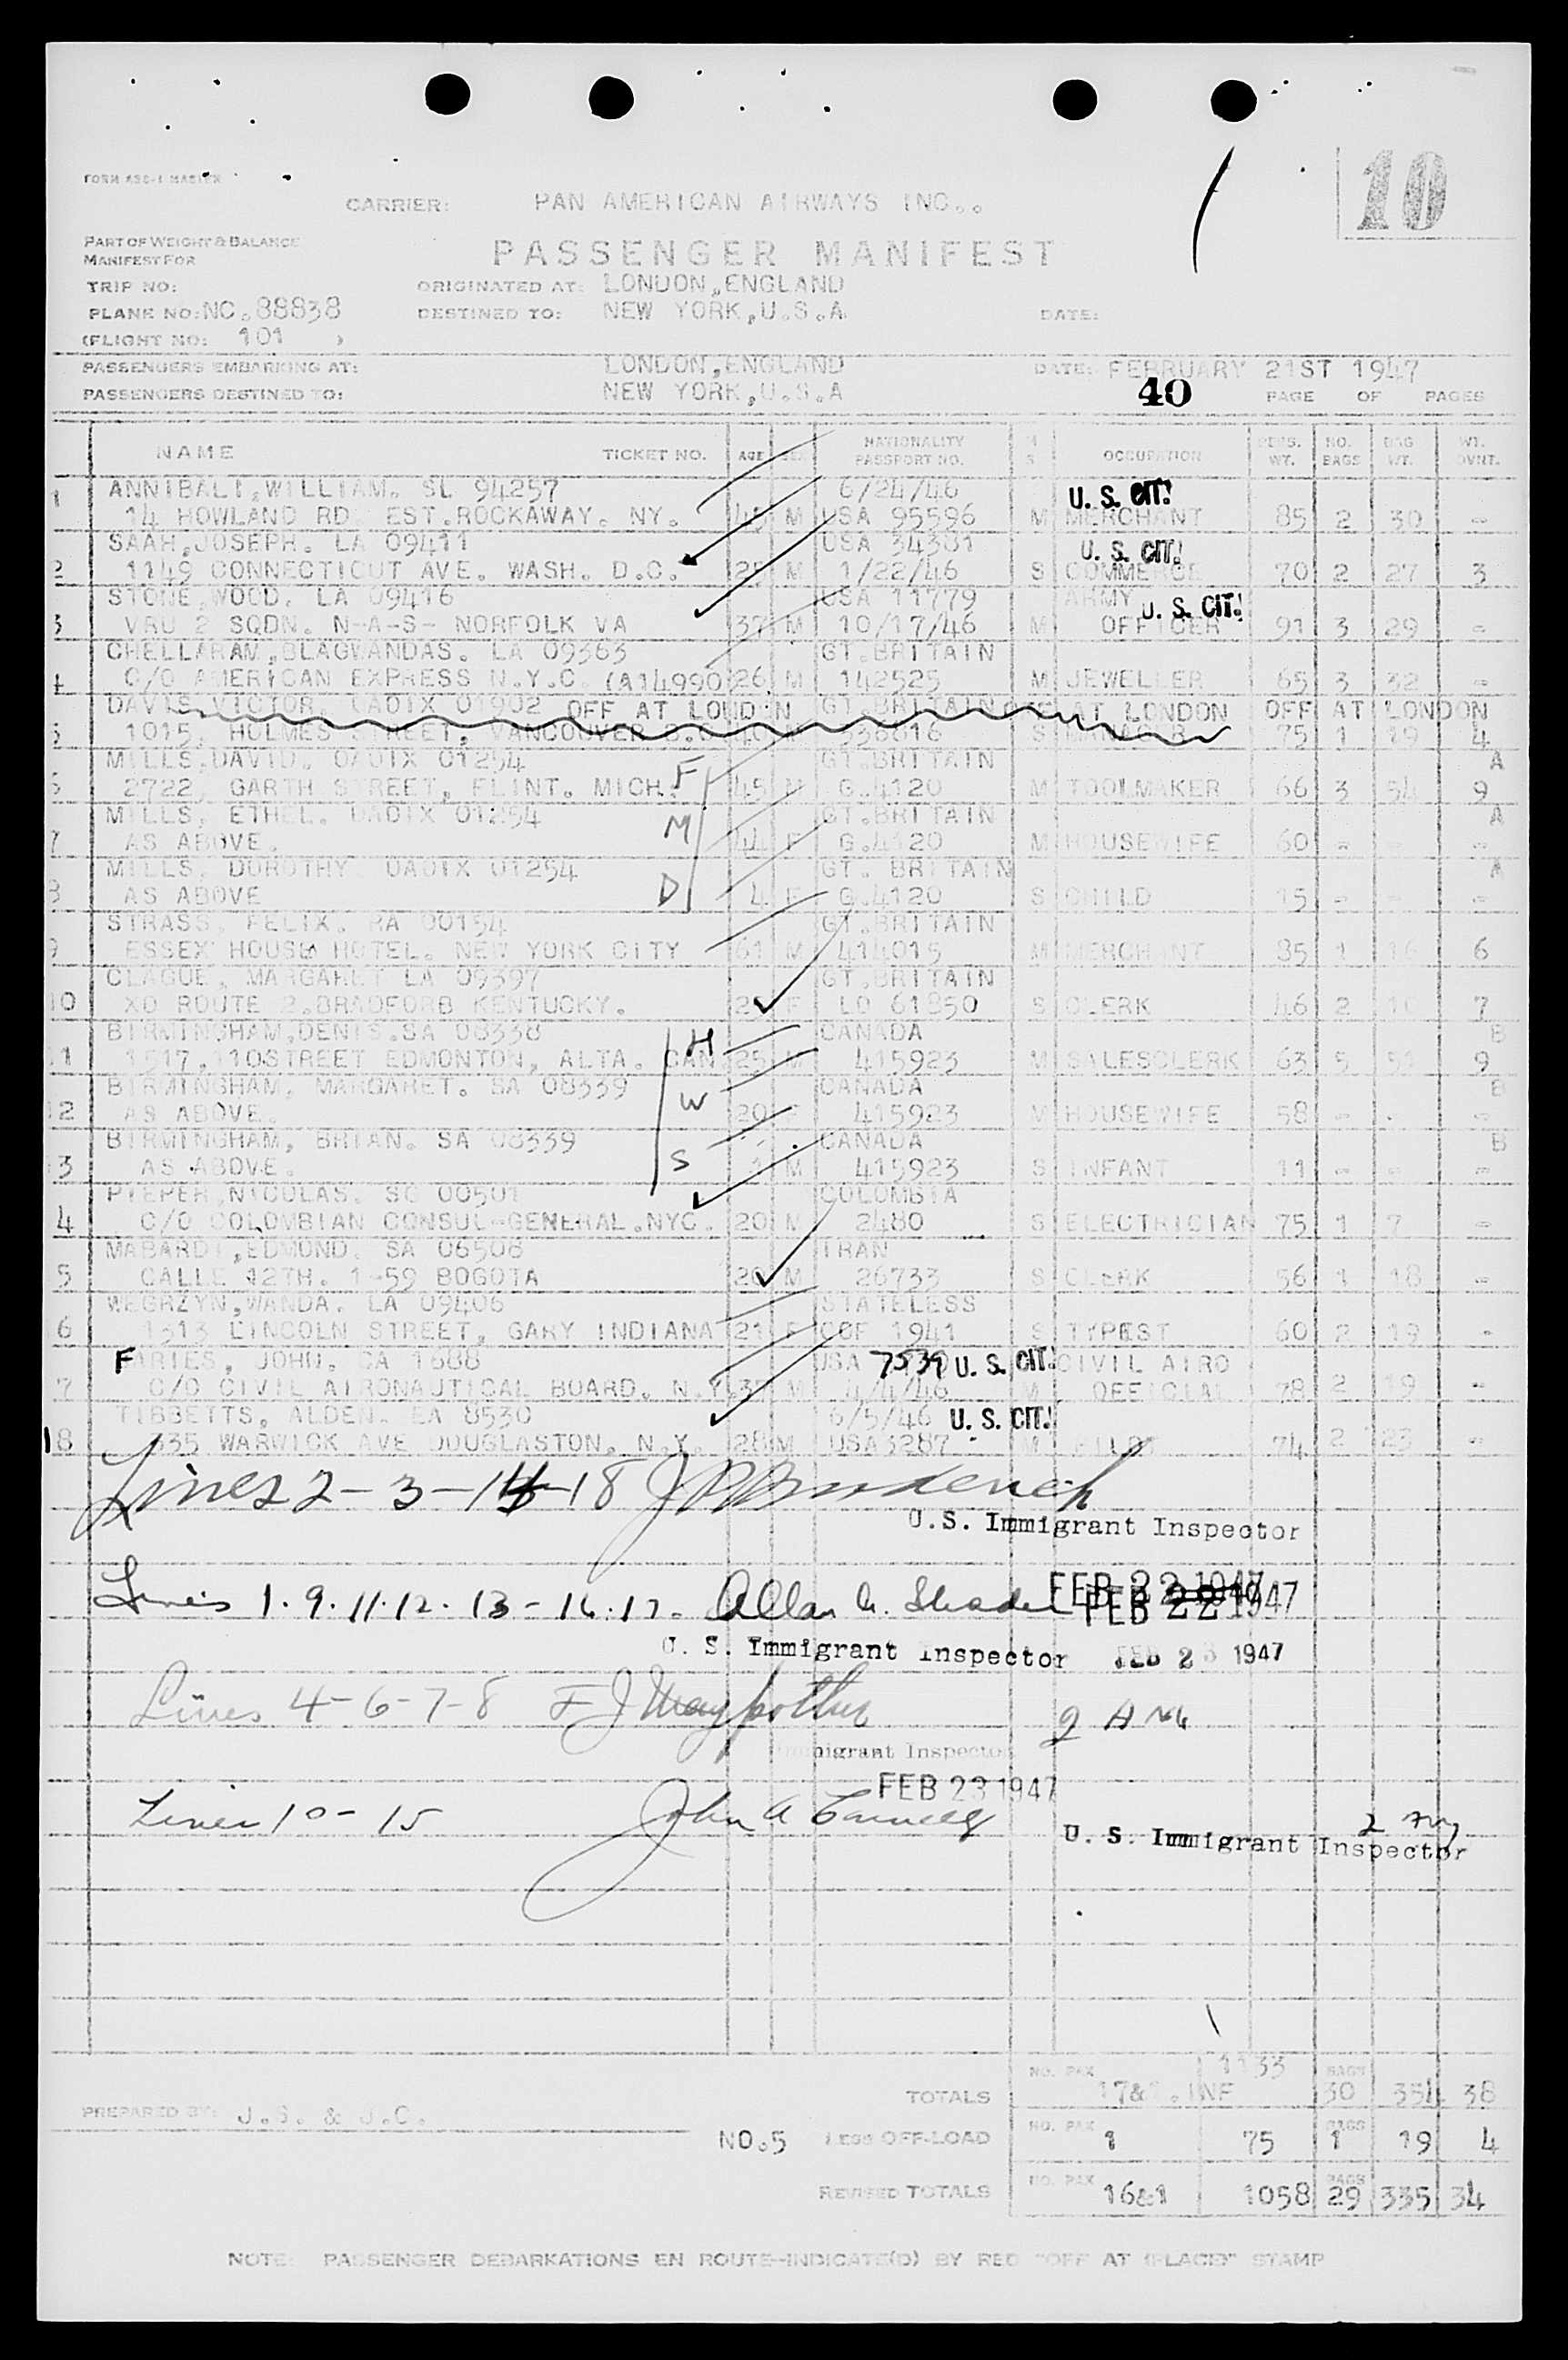 10
CARRIER: PAN AMERICAN AIRWAYS INC..
PART OF WEIGHT & BALANCE
MANIFEST FOR
PASSENGER MANIFEST
TRIP NO: ORIGINATED AT: LONDON,ENGLAND
PLANE NO: NC.88838 DESTINED TO: NEW YORK,U.S.A DATE:
(FLIGHT NO: 101 )
PASSENGERS EMBARKING AT: LONDON,ENGLAND DATE: FEBRUARY 21ST 1947
PASSENGERS DESTINED TO: NEW YORK,U.S.A 40 PAGE OF PAGES
NAME TICKET NO. AGE SEX NATIONALITY PASSPORT NO. M S OCCUPATION PENG. WT. NO. BAGS BAG WT. WT. OVNT.
1 ANNIBALI,WILLIAM. SL 94257 6/24/46 U. S. CIT.
14 HOWLAND RD EST.ROCKAWAY. NY. M USA 95596 M MERCHANT 85 2 30 -
SAAH,JOSEPH. LA 09411 USA 34381 U. S. CIT.
2 1149 CONNECTICUT AVE. WASH. D.C. M 1/22/46 S COMMERCE 70 2 27 3
STONE,WOOD. LA 09416 USA 11779 ARMY U. S. CIT.
3 VRU 2 SQDN. N-A-S- NORFOLK VA 37 M 10/17/46 M OFFICER 91 3 29 -
CHELLARAM,BLAGWANDAS. LA 09363 GT.BRITAIN
4 C/O AMERICAN EXPRESS N.Y.C. (A14990 26 M 142525 M JEWELLER 65 3 32 -
DAVIS VICTOR. OADIX 01902 OFF AT LONDON GT.BRITAIN OFF AT LONDON OFF AT LONDON
5 1015, HOLMES STREET, VANCOUVER B.C 75 1 19 4
MILLS,DAVID. OADIX 01254 F GT.BRITAIN A
6 2722, GARTH STREET, FLINT. MICH. 45 M G.4120 M TOOLMAKER 66 3 54 9
MILLS, ETHEL. OADIX 01254 M GT.BRITAIN A
7 AS ABOVE. 44 F G.4120 M HOUSEWIFE 60 - - -
MILLS, DOROTHY OADIX 01254 GT. BRITAIN A
8 AS ABOVE D 4 F G.4120 S CHILD 15 - - -
STRASS, FELIX. RA 00154 GT.BRITAIN
9 ESSEX HOUSE HOTEL. NEW YORK CITY 61 M 414015 M MERCHANT 85 1 16 6
CLAGUE, MARGARET LA 09397 GT.BRITAIN
10 XO ROUTE 2.BRADFORB KENTUCKY. F LO 61850 S CLERK 46 2 7
BIRMINGHAM,DENIS.SA 08338 H CANADA B
11 110STREET EDMONTON, ALTA. CAN 25 M 415923 M SALESCLERK 63 5 9
BIRMINGHAM, MARGARET. SA 08339 W CANADA B
12 AS ABOVE. 20 F 415923 M HOUSEWIFE 58 - - -
BIRMINGHAM, BRIAN. SA 08339 CANADA B
13 AS ABOVE. S 1 M 415923 S INFANT 11 - - -
PIEPER,NICOLAS. SC 00501 COLOMBIA
4 C/O COLOMBIAN CONSUL-GENERAL.NYC. 20 M 2480 S ELECTRICIAN 75 1 7 -
MABARDI,EDMOND. SA 06508 IRAN
5 CALLE 12TH. 1-59 BOGOTA 20 M 26733 S CLERK 56 1 18 -
WEGRZYN,WANDA. LA 09406 STATELESS
6 1313 LINCOLN STREET, GARY INDIANA 21 F COF 1941 S TYPEST 60 2 19 -
FARIES, JOHN. CA 1688 USA 7539 U. S. CIT. CIVIL AIRO
7 C/O CIVIL AIRONAUTICAL BOARD. N.Y. M 4/4/46 M OFFICIAL 78 2 19 -
TIBBETTS, ALDEN. EA 8530 6/5/46 U. S. CIT.
18 335 WARWICK AVE DOUGLASTON. N.Y. 28 M USA3287 M PILOT 74 2 23 -
Lines 2-3-14-18
U.S. Immigrant Inspector
Lines 1.9.11.12.13-16.17. Allan FEB 22 1947
U. S. Immigrant Inspector FEB 23 1947
Lines 4-6-7-8 F J
Immigrant Inspector
FEB 23 1947
Lines 10-15 John A
U. S. Immigrant Inspector
TOTALS NO. PAX 17&1.INF 1133 BAGS 30 354 38
PREPARED BY: J.S. & J.C.
NO.5 LESS OFF-LOAD NO. PAX 1 75 BAGS 1 19 4
REVISED TOTALS NO. PAX 16&1 1058 BAGS 29 335 34
NOTE: PASSENGER DEBARKATIONS EN ROUTE-INDICATE(D) BY RED "OFF AT (PLACE)" STAMP